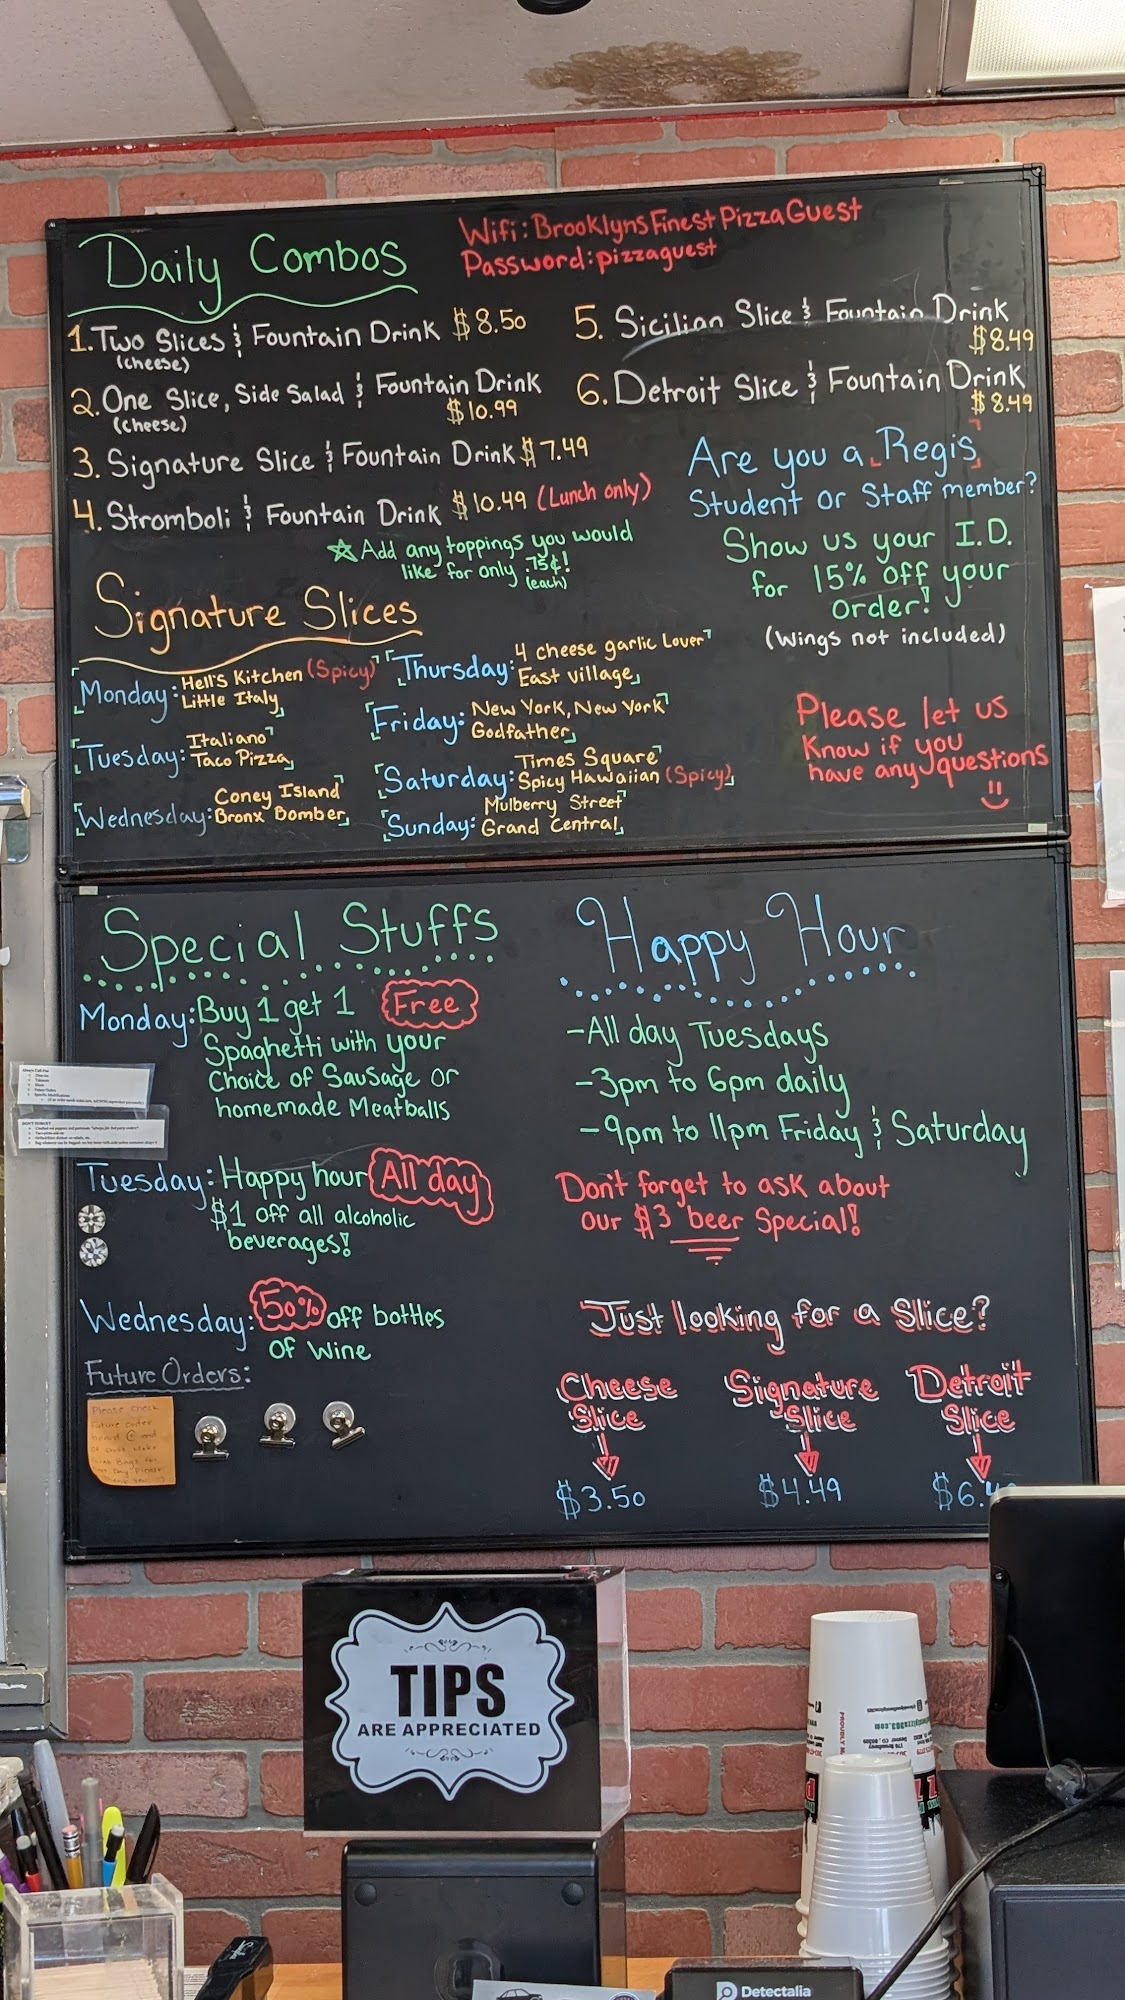 Daily Combos
Wifi: BrooklynsFinestPizzaGuest
Password: pizzaguest
1. Two Slices & Fountain Drink $8.50
(cheese)
2. One Slice, Side Salad & Fountain Drink
(cheese) $10.99
3. Signature Slice & Fountain Drink $7.49
4. Stromboli & Fountain Drink $10.49 (Lunch only)
☆ Add any toppings you would
like for only .75¢!
(each)
5. Sicilian Slice & Fountain Drink
$8.49
6. Detroit Slice & Fountain Drink
$8.49
Are you a Regis
Student or Staff member?
Show us your I.D.
for 15% off your
order!
(Wings not included)
Signature Slices
Monday: Hell's Kitchen (Spicy)
Little Italy
Tuesday: Italiano
Taco Pizza
Wednesday: Coney Island
Bronx Bomber
Thursday: 4 cheese garlic Lover
East village
Friday: New York, New York
Godfather
Saturday: Times Square
Spicy Hawaiian (Spicy)
Sunday: Mulberry Street
Grand Central
Please let us
Know if you
have any questions
Special Stuffs
Monday: Buy 1 get 1 Free
Spaghetti with your
Choice of Sausage or
homemade Meatballs
Tuesday: Happy hour All day
$1 off all alcoholic
beverages!
Wednesday: 50% off bottles
of wine
Future Orders:
Please check
future order
Happy Hour
- All day Tuesdays
- 3pm to 6pm daily
- 9pm to 11pm Friday & Saturday
Don't forget to ask about
our $3 beer Special!
Just looking for a Slice?
Cheese Slice
$3.50
Signature Slice
$4.49
Detroit Slice
$6.4
TIPS
ARE APPRECIATED
Detectalia